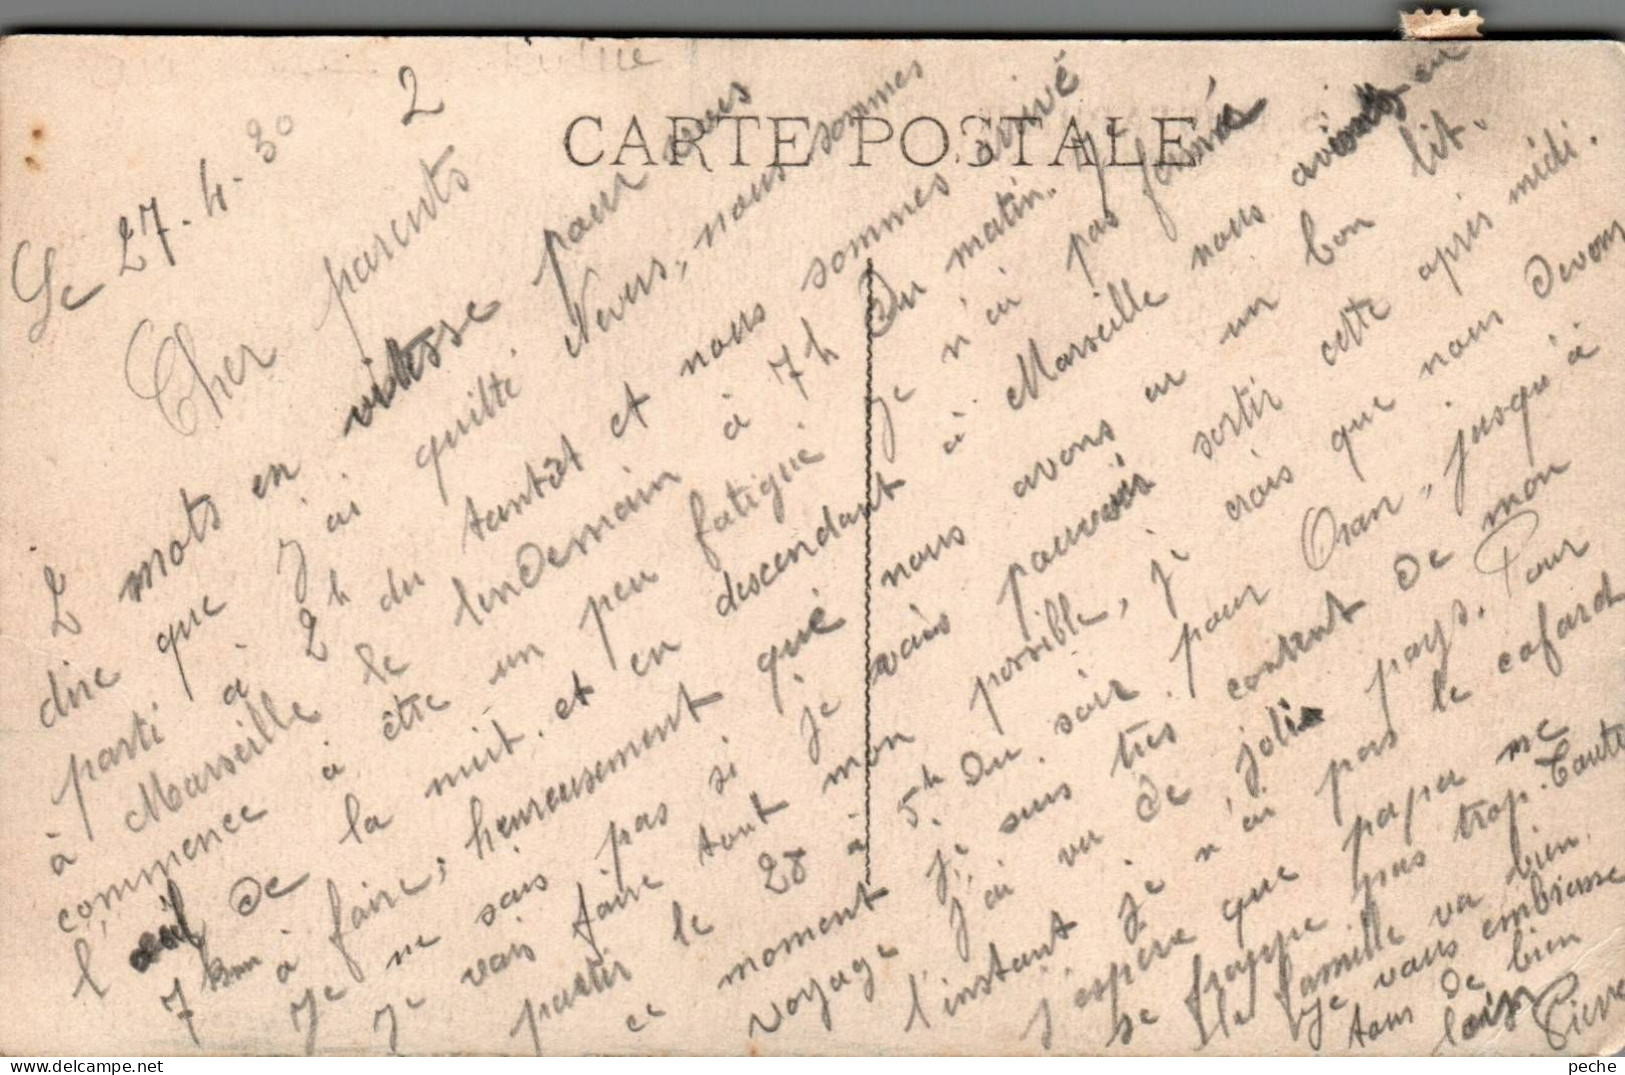 CARTE POSTALE
2
Le 27-4-30
Cher parents
2 mots en vitesse pour vous
dire que j'ai quitté Nevers, nous sommes
parti à 2h du tantôt et nous sommes arrivé
à Marseille le lendemain à 7h du matin. J'
commence à être un peu fatigué je n'ai pas fermé
l'œil de la nuit. et en descendant à Marseille nous avions en
7 Km à faire, heureusement que nous avons eu un bon lit.
Je ne sais pas si je vais pouvoir sortir cette après midi.
Je vais faire tout mon possible, je crois que nous devons
partir le 28 à 5h du soir pour Oran, jusqu'à
ce moment je suis très content de mon
voyage j'ai vu de jolis pays. Pour
l'instant je n'ai pas le cafard
J'espère que papa me
se frappe pas trop. Toute
la famille va bien.
Je vous embrasse
tous de bien
loin Pierre
peche